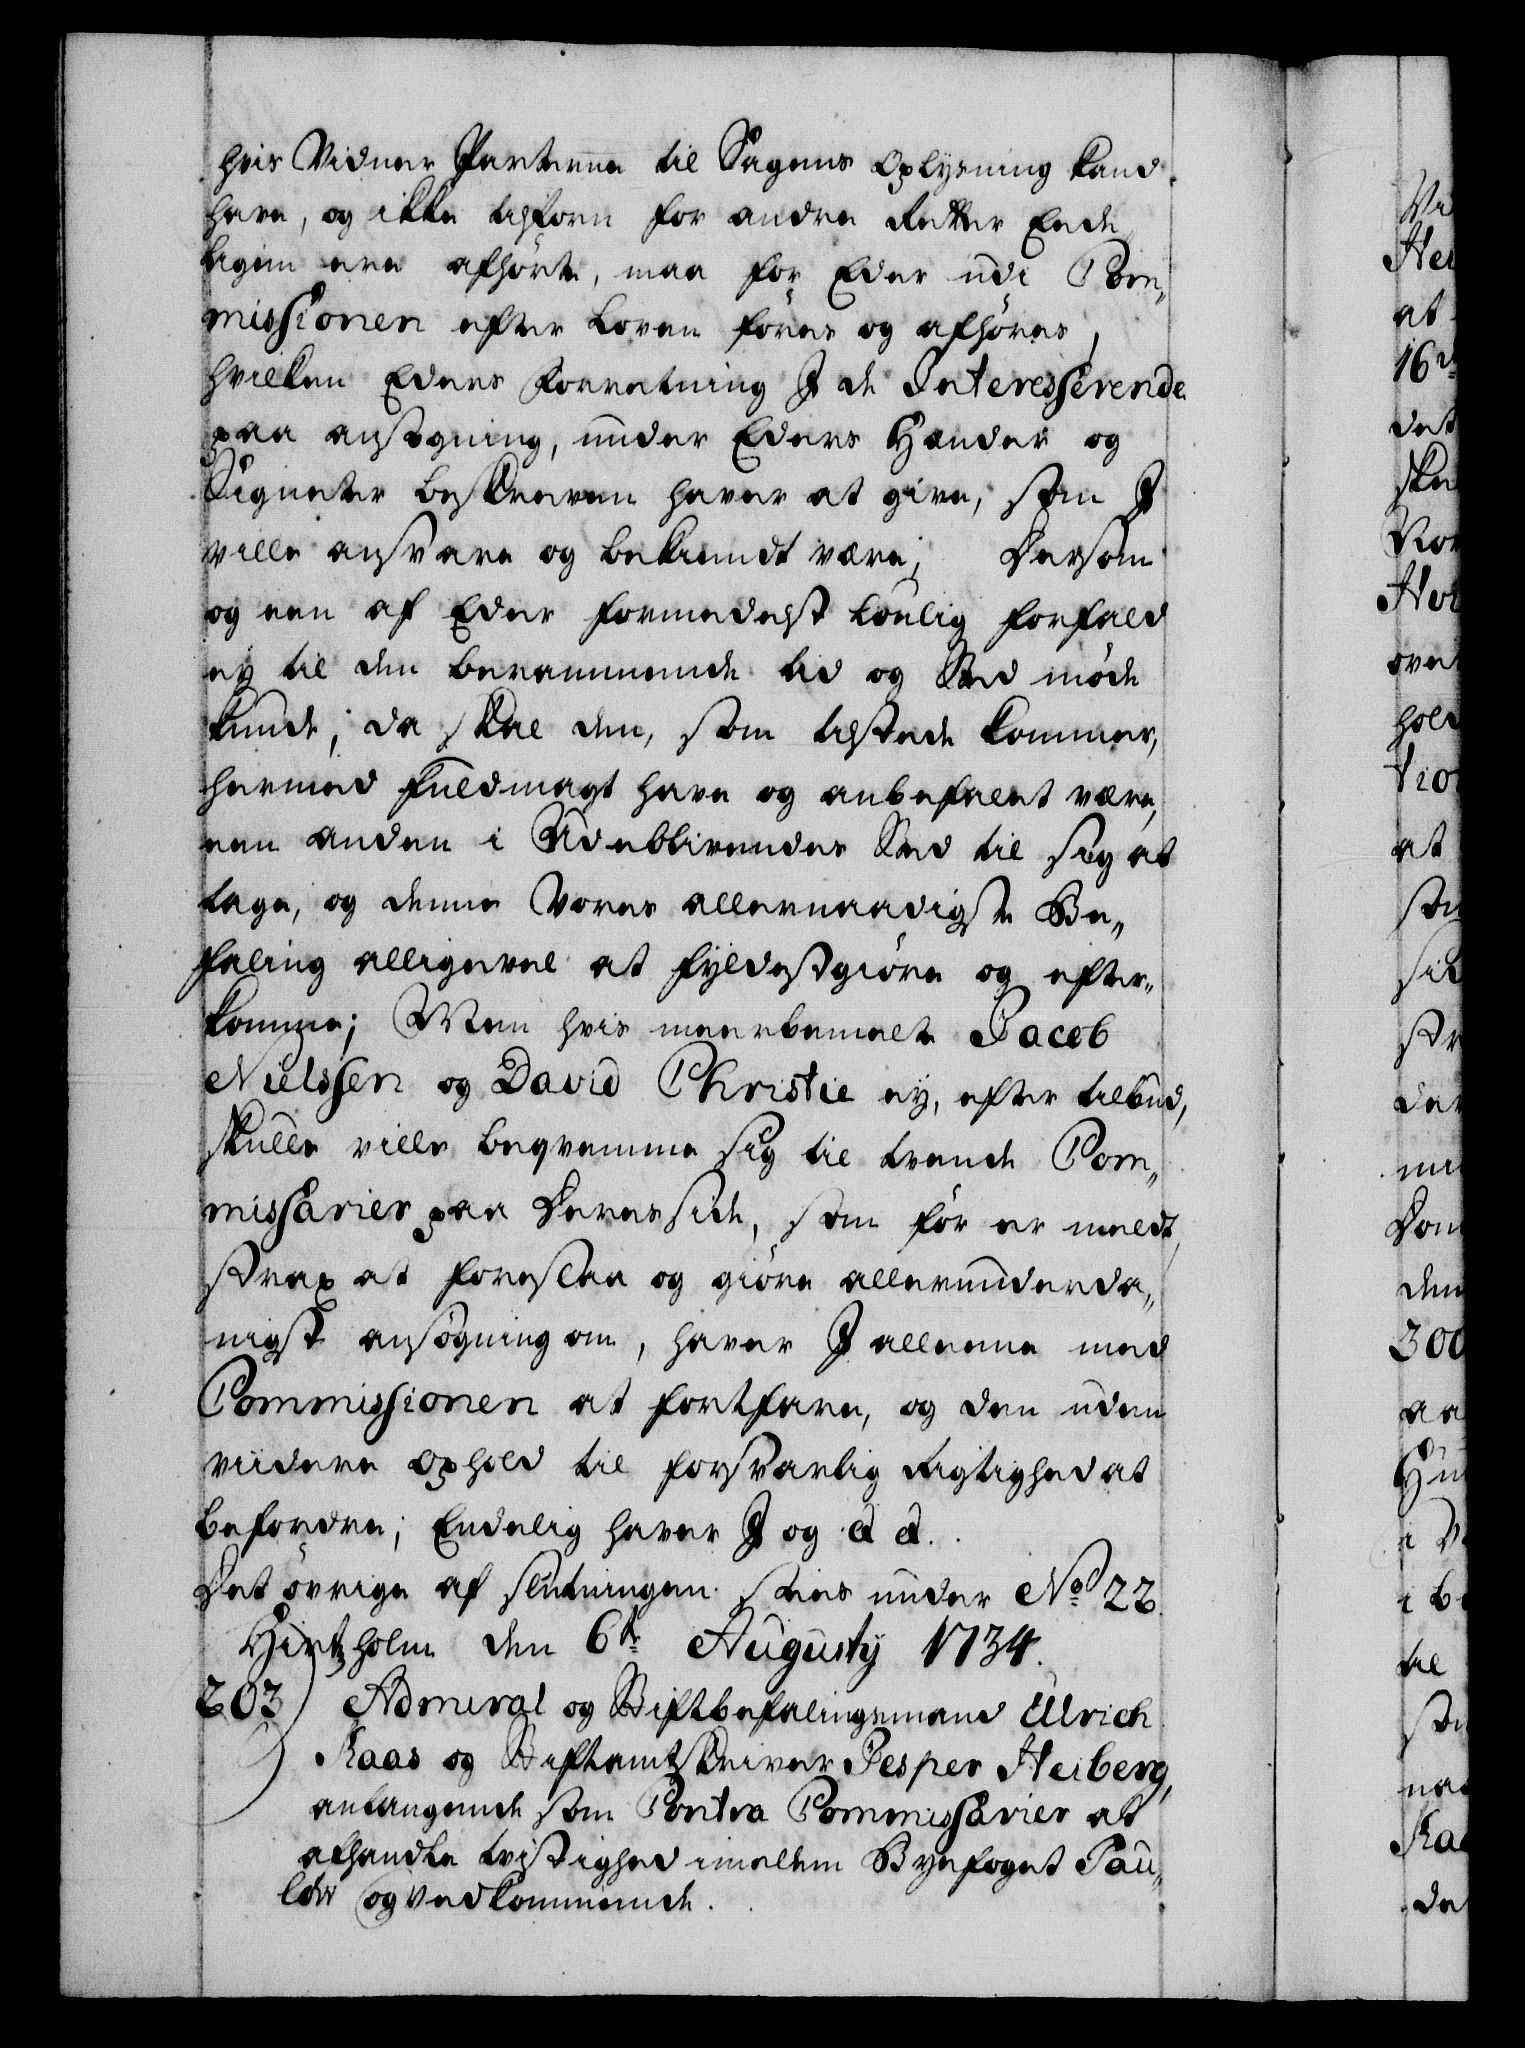 hvis Vidner Parterne til Sagens Oplysning kand
have, og ikke tilforn for andre Retter Ende
ligen ere afhørte, maa for Eder udi Com„
missionen efter Loven føres og afhøres,
hvilken Eders Forretning I de Interesserende
paa ansøgning, under Eders Hænder og
Signeter beskreven haver at give, som I
ville ansvare og bekiendt være; Dersom
og een af Eder formedelst lovlig forfald
ey til den berammende tid og Sted møde
kunde, da skal den, som tilstede kommer,
hermed fuldmagt have og anbefalet være,
een anden i Udeblivendes Sted til sig at
tage, og denne Vores allernaadigste Be„
faling alligevel at fyldestgiøre og efter„
komme; Men hvis meerbemelte Jacob
Nielssen og David Christie ey, efter tilbud,
skulle ville beqvemme sig til tvende Com„
missarier paa Deres side, som før er meldt,
strax at foreslaa og giøre allerunderda„
nigst ansøgning om, haver I alleene med
Commissionen at fortfare, og den uden
viidere Ophold til forsvarlig Rigtighed at
befordre; Endelig haver I og &c &c.
Det øvrige af slutningen staar under No 22
Hirtzholm den 6te Augusty 1734.
203) Admiral og Stiftbefalingsmand Ulrich
Kaas og Stiftamtskriver Jesper Heiberg,
anlangende som Contra Commissarier at
afhandle tvistighed imellem Byefoget Pau„
lsen og vedkommende.